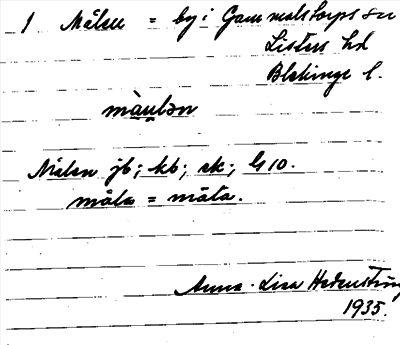 1 Målen = by i Gammalstorps sn
Listers hd
Blekinge l.
màu̯lən
Målen jb; kb; ek; G 10.
måla = mäta.
Anna-Lisa Hedensting
1935.